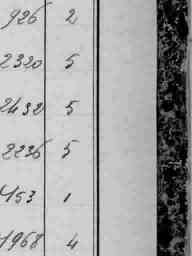 926 2
2320 5
2432 5
2236 5
453 1
1968 4